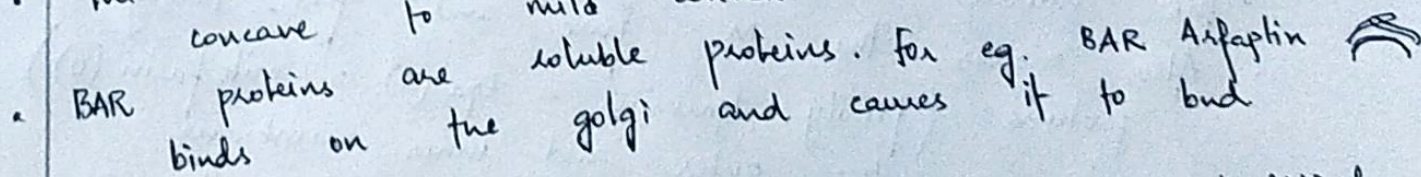 concave to mild
• BAR proteins are soluble proteins. for eg. BAR Arfaptin
binds on the golgi and causes it to bud